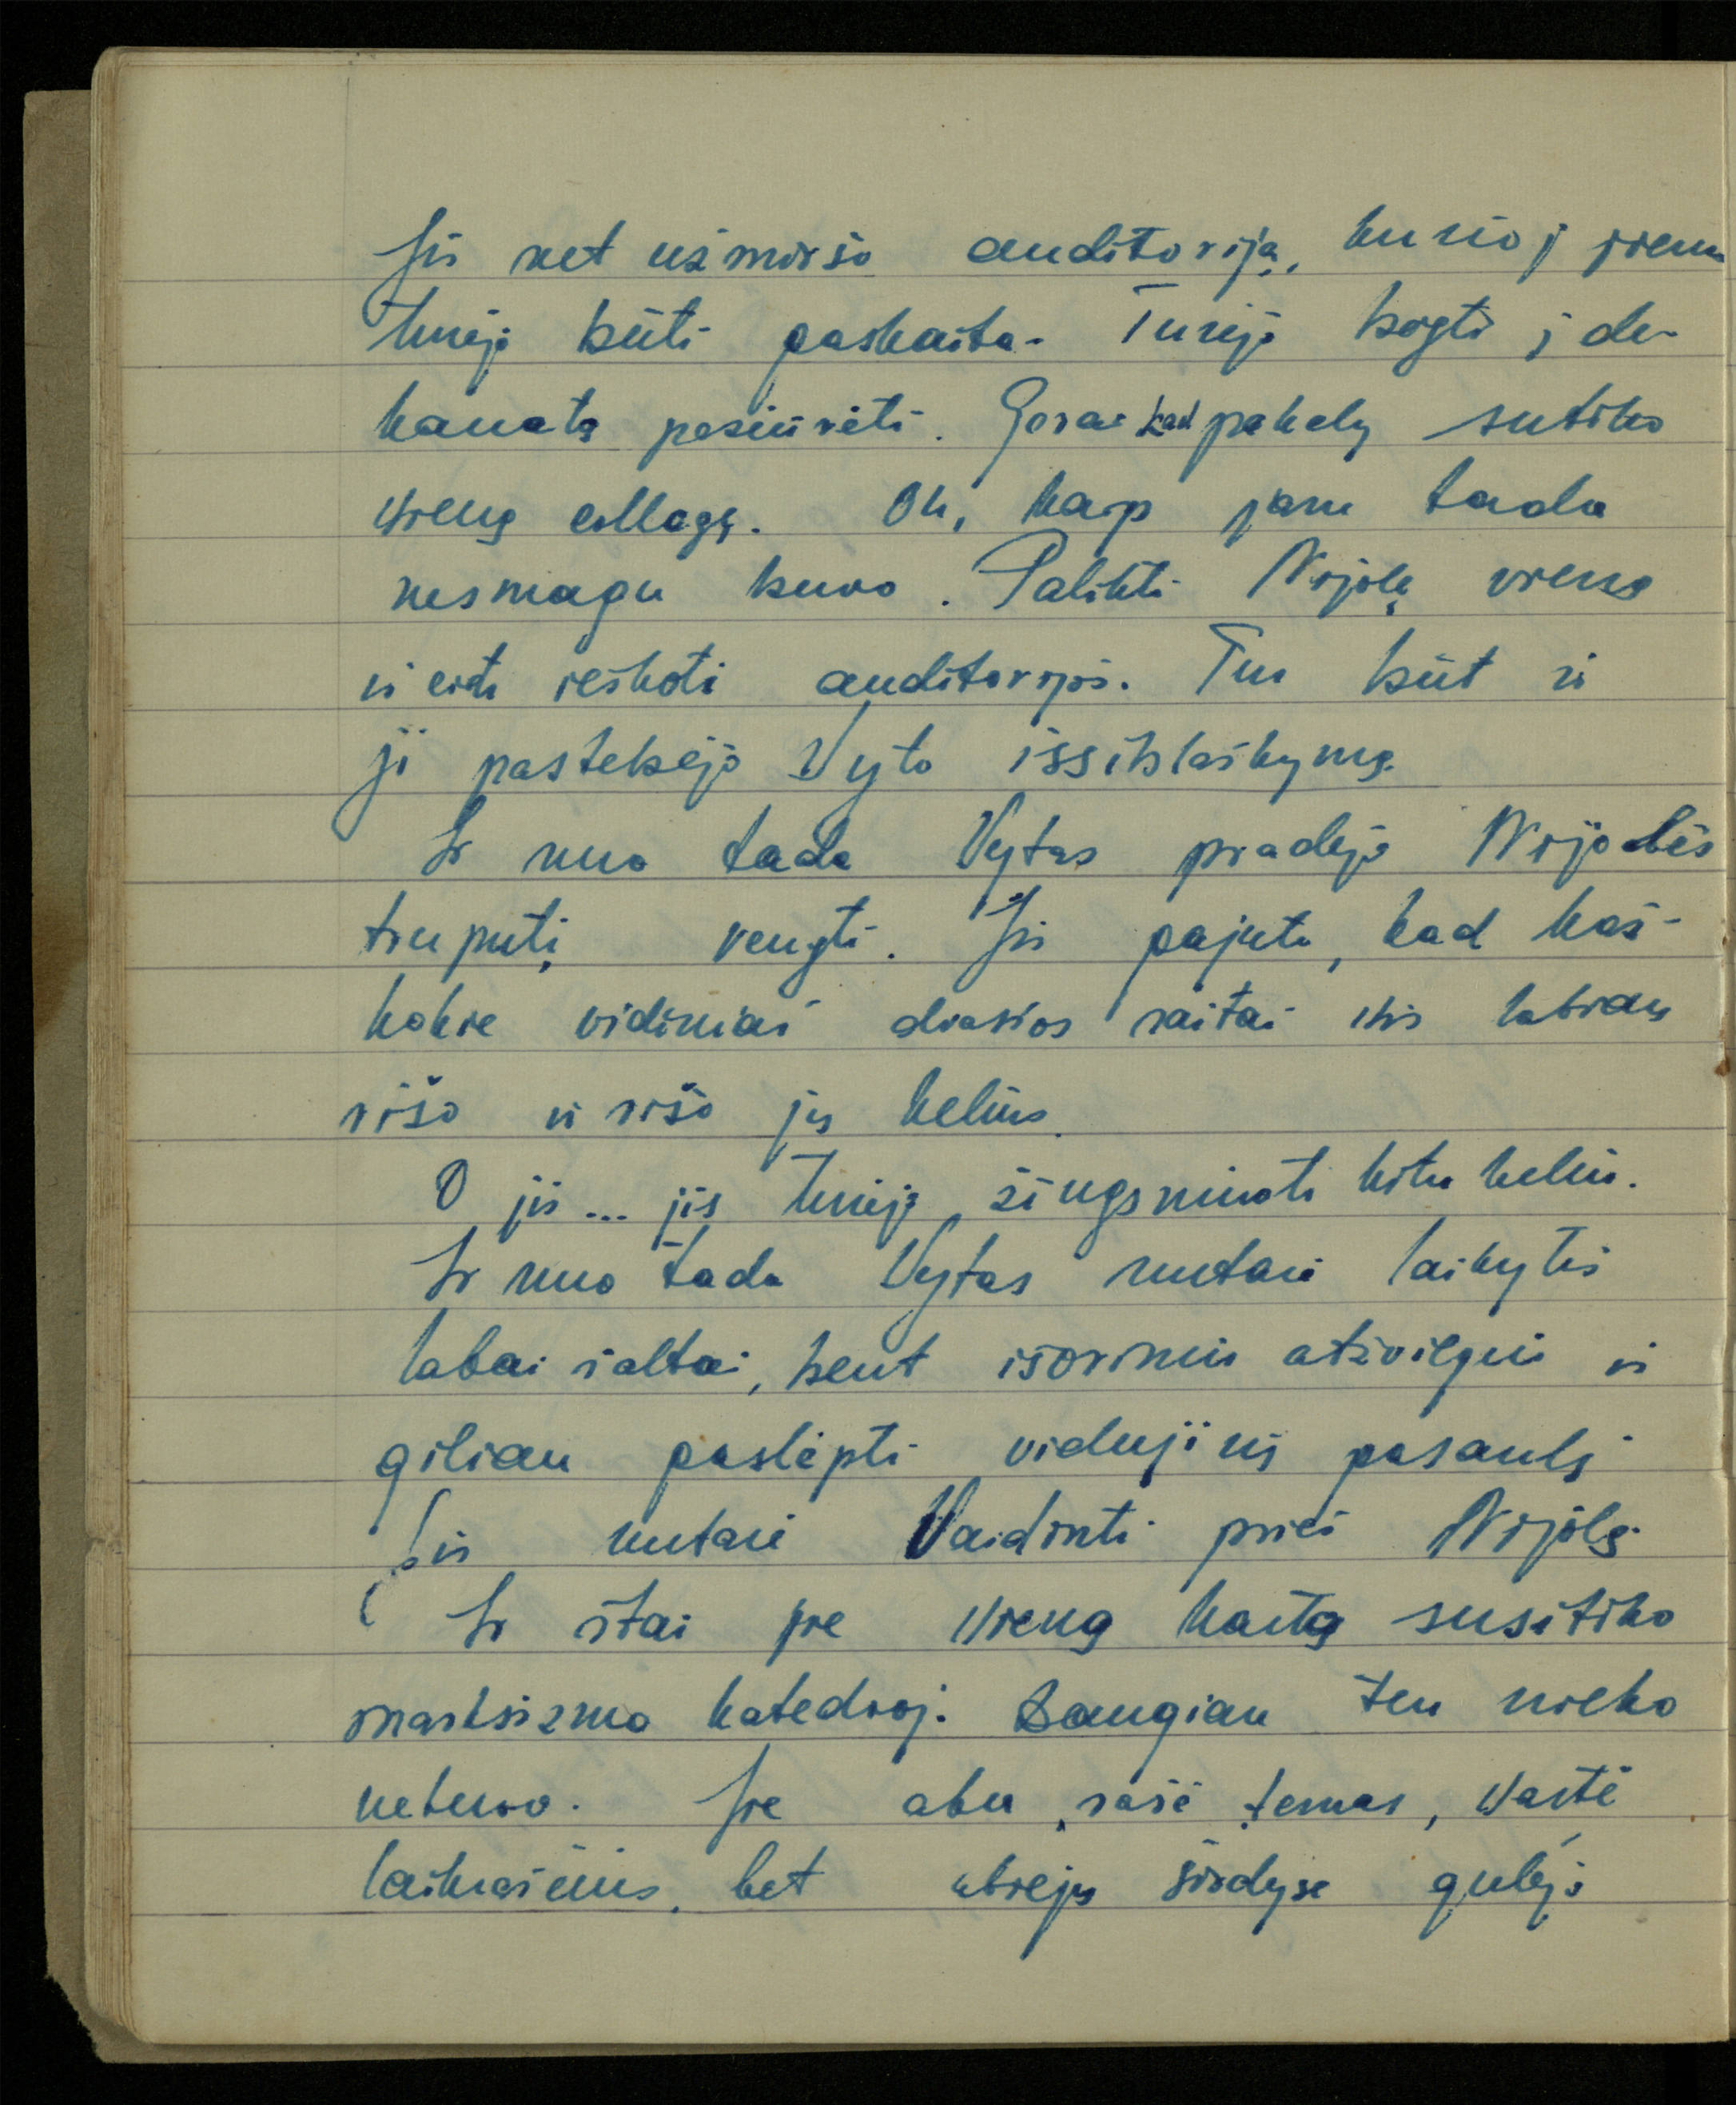 Jis net užmiršo auditoriją, kurioj jiem
turėjo būti paskaita. Turėjo bėgti į de-
kanatą pasiūrėti. Gerai kad pakely sutiko
vieną collegą. Oh, kaip jam tada
nesmagu buvo. Palikti Nijolę vieną
ir eiti ieškoti auditorijos. Tur būt ir
ji pastebėjo Vyto išsiblaškymą.
Ir nuo tada Vytas pradėjo Nijolės
truputį vengti. Jis pajuto, kad kaš-
kokie vidiniai dvasios saitai vis labiau
rišo ir rišo jų kelius.
O jis... jis turėjo žingsniuoti kitu keliu.
Ir nuo tada Vytas nutarė laikytis
labai šaltai, bent išoriniu atžvilgiu ir
giliau paslėpti vidujinį pasaulį
Jis nutarė Vaidinti prieš Nijolę.
Ir štai jie vieną kartą susitiko
marksizmo katedroj. Daugiau ten nieko
nebuvo. Jie abu rašė temas, vartė
laikraščius, bet abiejų širdyse gulėjo